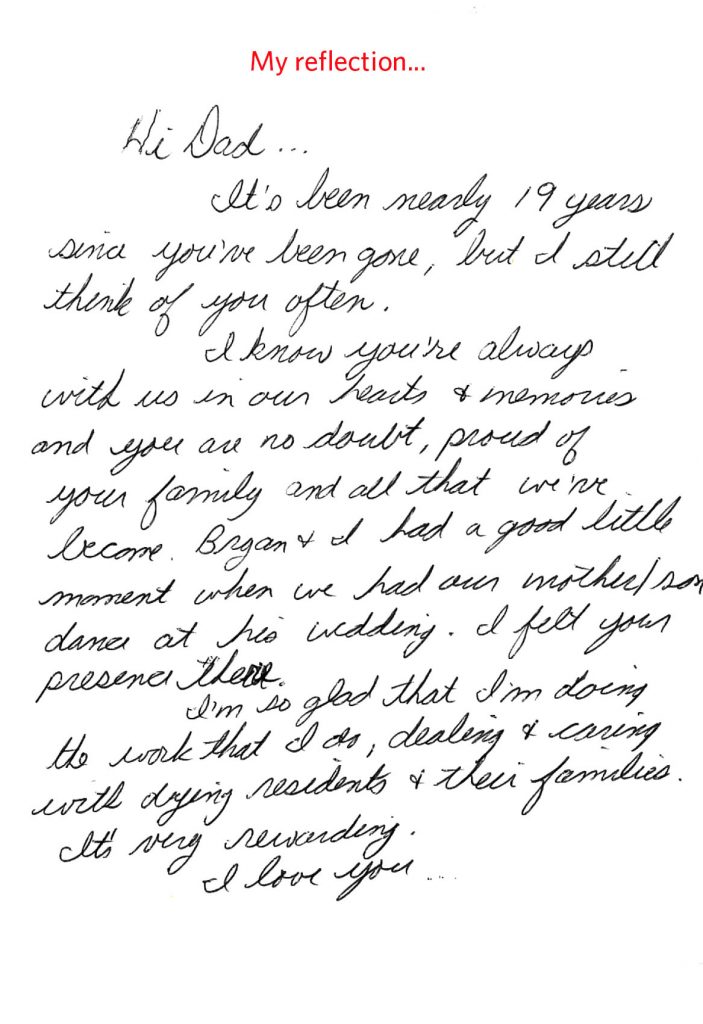 My reflection...
Hi Dad...
It's been nearly 19 years
since you've been gone, but I still
think of you often.
I know you're always
with us in our hearts & memories
and you are no doubt, proud of
your family and all that we've
become. Bryan & I had a good little
moment when we had our mother/son
dance at his wedding. I felt your
presence there.
I'm so glad that I'm doing
the work that I do, dealing & caring
with dying residents & their families.
It's very rewarding.
I love you...